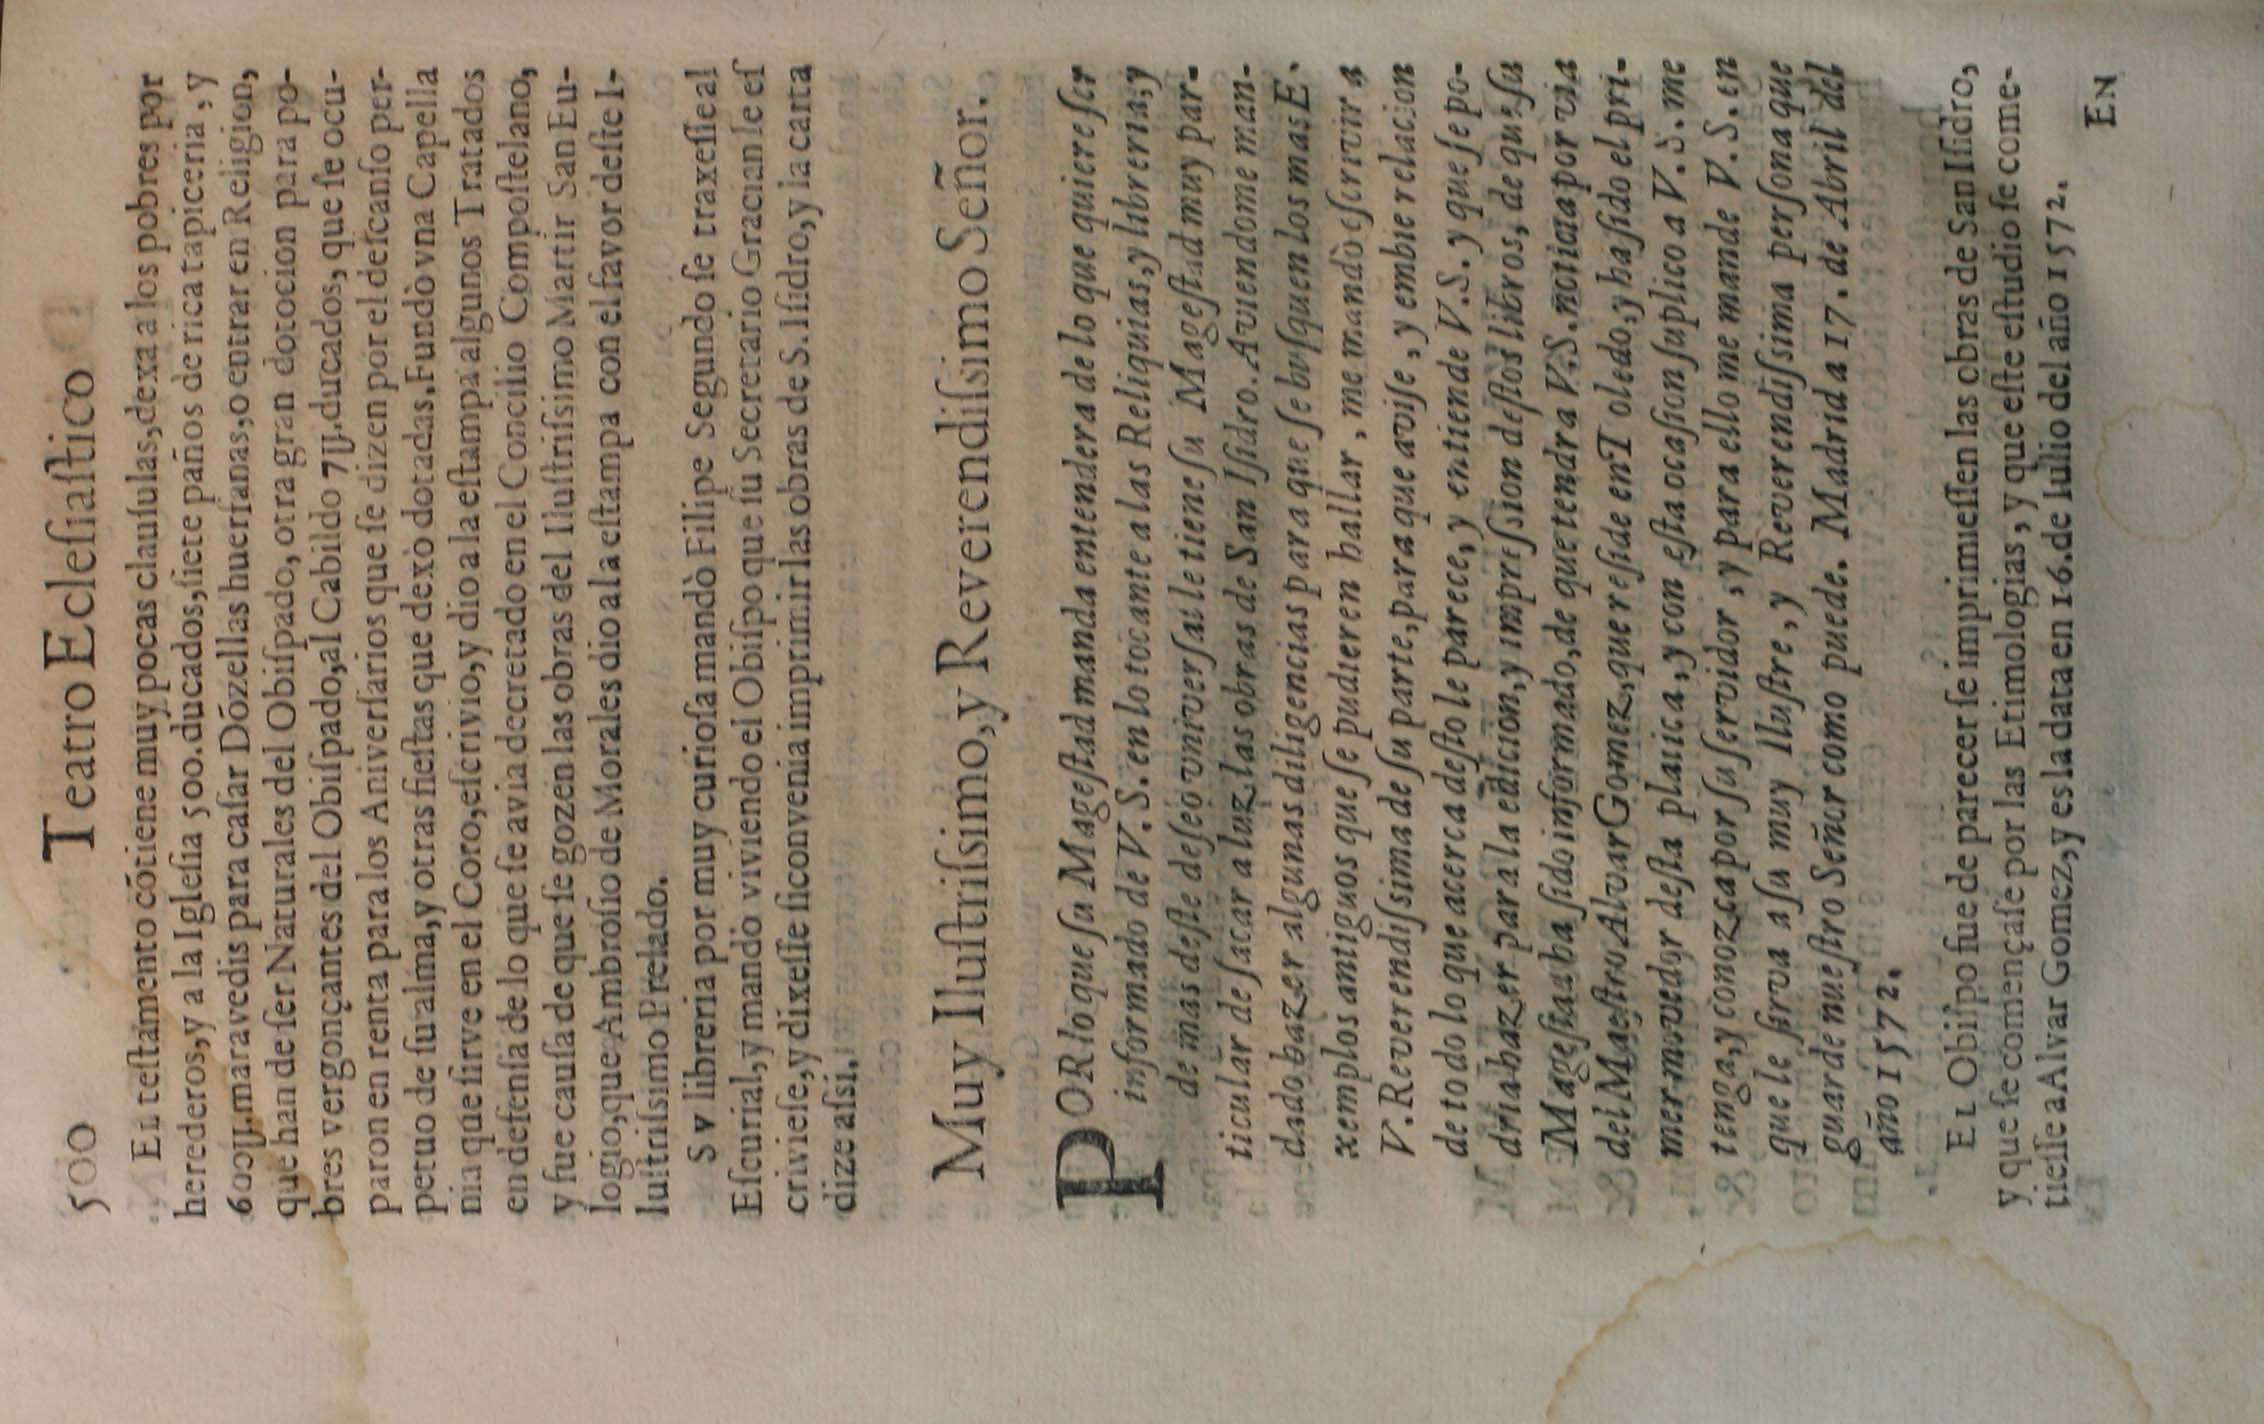 500 Teatro Ecleſiaſtico
EL teſtamento cótiene muy pocas clauſulas, dexa a los pobres por
herederos, y a la Igleſia 500. ducados, ſiete paños de rica tapiceria, y
600y. maravedis para caſar Dózellas huerfanas, o entrar en Religion,
que han de ſer Naturales del Obiſpado, otra gran dotocion para po-
bres vergonçantes del Obiſpado, al Cabildo 7y. ducados, que ſe ocu-
paron en renta para los Aniverſarios que ſe dizen por el deſcanſo per-
petuo de ſu alma, y otras fieſtas que dexò dotadas. Fundò vna Capella
nia que ſirve en el Coro, eſcrivio, y dio a la eſtampa algunos Tratados
en defenſa de lo que ſe avia decretado en el Concilio Compoſtelano,
y fue cauſa de que ſe gozen las obras del Iluſtriſsimo Martir San Eu-
logio, que Ambroſio de Morales dio a la eſtampa con el favor deſte I-
luſtriſsimo Prelado.
Sv libreria por muy curioſa mandò Filipe Segundo ſe traxeſſe al
Eſcurial, y mandò viviendo el Obiſpo que ſu Secretario Gracian le eſ
crivieſe, y dixeſſe ſi convenia imprimir las obras de S. Iſidro, y la carta
dize aſsi.
Muy Iluſtriſsimo, y Reverendiſsimo Señor.
POR lo que ſu Mageſtad manda entendera de lo que quiere ſer
informado de V.S. en lo tocante a las Reliquias, y libreria, y
de mas deſte deſeo vniverſal le tiene ſu Mageſtad muy par-
ticular de ſacar a luz las obras de San Iſidro. Aviendome man-
dado hazer algunas diligencias para que ſe buſquen los mas E-
xemplos antiguos que ſe pudieren hallar, me mandò eſcrivir a
V. Reverendiſsima de ſu parte, para que aviſe, y embie relacion
de todo lo que acerca deſto le parece, y entiende V.S. y que ſe po-
dria hazer para la edicion, y impreſsion deſtos libros, de que ſu
Mageſtad ha ſido informado, de que tendra V.S. noticia por via
del Maeſtro Alvar Gomez, que reſide en Toledo, y ha ſido el pri-
mer movedor deſta platica, y con eſta ocaſion ſuplico a V.S. me
tenga, y conozca por ſu ſervidor, y para ello me mande V.S. en
que le ſirva a ſu muy Iluſtre, y Reverendiſsima perſona que
guarde nueſtro Señor como puede. Madrid a 17. de Abril del
año 1572.
EL Obiſpo fue de parecer ſe imprimieſſen las obras de San Iſidro,
y que ſe començaſe por las Etimologias, y que eſte eſtudio ſe come-
tieſſe a Alvar Gomez, y es la data en 16. de Iulio del año 1572.
EN